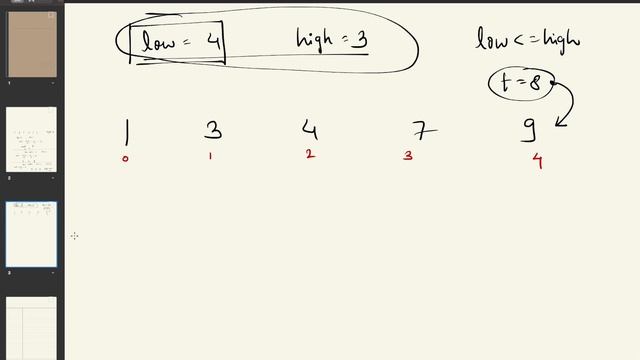 low = 4 high = 3 low <= high
t = 8
1 3 4 7 9
0 1 2 3 4
1
2
3